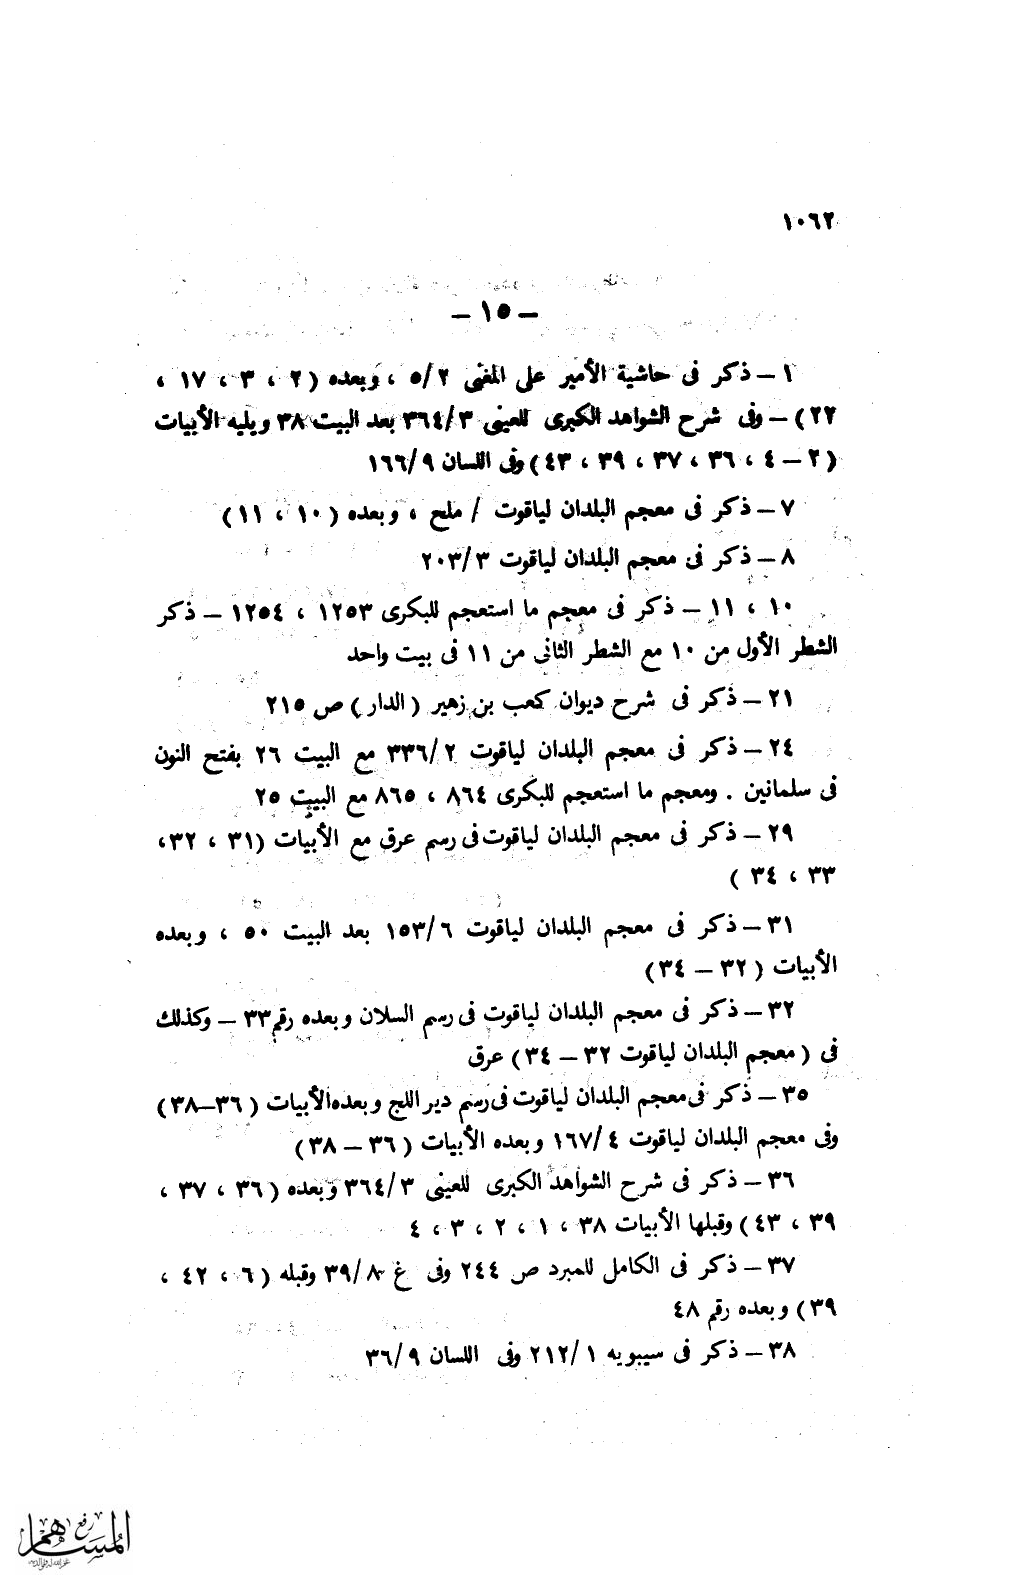 ١٠٦٢
– ١٥ –
١ – ذكر فى حاشية الأمير على المغنى ٥/٢ ، وبعده ( ٢ ، ٣ ، ١٧ ،
٢٢) – وفى شرح الشواهد الكبرى للعينى ٣٦٤/٣ بعد البيت ٣٨ ويليه الأبيات
( ٢ – ٤ ، ٣٦ ، ٣٧ ، ٣٩ ، ٤٣) وفى اللسان ١٦٦/٩
٧ – ذكر فى معجم البلدان لياقوت / ملح ، وبعده ( ١٠ ، ١١)
٨ – ذكر فى معجم البلدان لياقوت ٢٠٣/٣
١٠ ، ١١ – ذكر فى معجم ما استعجم للبكرى ١٢٥٣ ، ١٢٥٤ – ذكر
الشطر الأول من ١٠ مع الشطر الثانى من ١١ فى بيت واحد
٢١ – ذكر فى شرح ديوان كعب بن زهير ( الدار ) ص ٢١٥
٢٤ – ذكر فى معجم البلدان لياقوت ٣٣٦/٢ مع البيت ٢٦ بفتح النون
فى سلمانين . ومعجم ما استعجم للبكرى ٨٦٤ ، ٨٦٥ مع البيت ٢٥
٢٩ – ذكر فى معجم البلدان لياقوت فى رسم عرق مع الأبيات (٣١ ، ٣٢،
٣٣ ، ٣٤ )
٣١ – ذكر فى معجم البلدان لياقوت ١٥٣/٦ بعد البيت ٥٠ ، وبعده
الأبيات ( ٣٢ – ٣٤)
٣٢ – ذكر فى معجم البلدان لياقوت فى رسم السلان وبعده رقم ٣٣ – وكذلك
فى ( معجم البلدان لياقوت ٣٢ – ٣٤ ) عرق
٣٥ – ذكر فى معجم البلدان لياقوت فى رسم دير اللج وبعده الأبيات ( ٣٦–٣٨)
وفى معجم البلدان لياقوت ١٦٧/٤ وبعده الأبيات ( ٣٦ – ٣٨)
٣٦ – ذكر فى شرح الشواهد الكبرى للعينى ٣٦٤/٣ وبعده ( ٣٦ ، ٣٧ ،
٣٩ ، ٤٣) وقبلها الأبيات ٣٨ ، ١ ، ٢ ، ٣ ، ٤
٣٧ – ذكر فى الكامل للمبرد ص ٢٤٤ وفى غ ٣٩/٨ وقبله ( ٦ ، ٤٢ ،
٣٩) وبعده رقم ٤٨
٣٨ – ذكر فى سيبويه ٢١٢/١ وفى اللسان ٣٦/٩